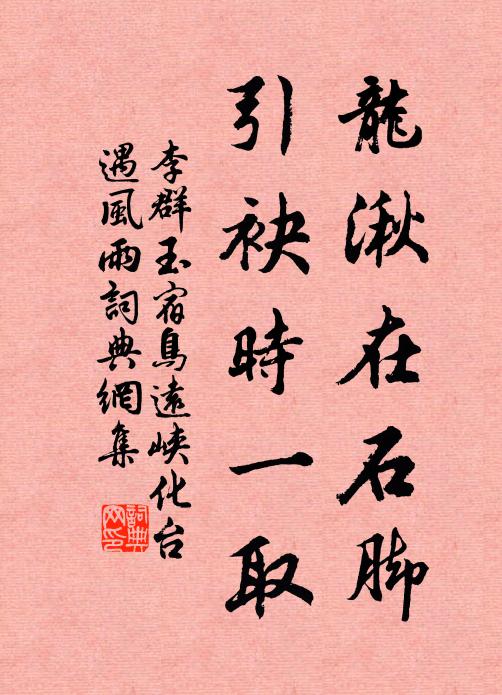 龍湫在石脚
引袂時一取
李群玉宿鳥遠峽化台
遇風雨詞典網集
詞典网印